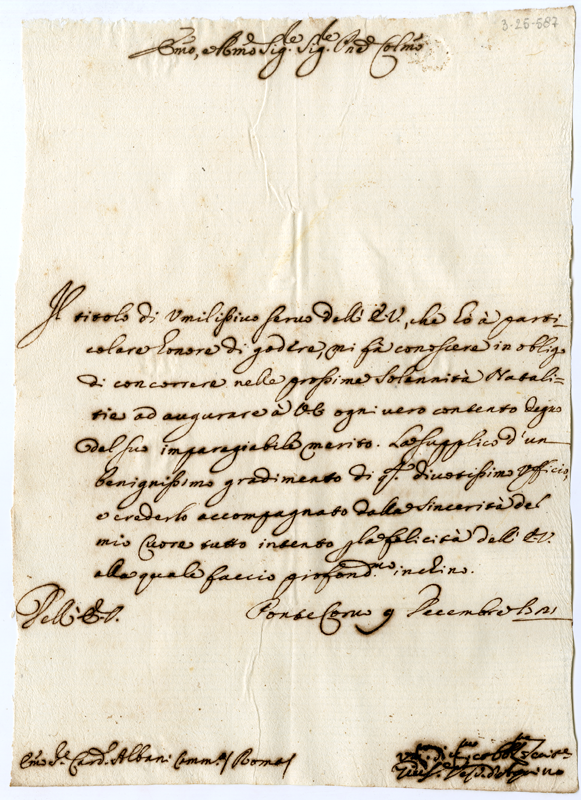 3-25-587
Em̃o, e Rmõ Sig.re Sig.re Pñe Colmõ
Il titolo di Umilissimo servo dell' E.V., che hò à parti-
colare honore di godere, mi fà conoscere in obligo
di concorrere nelle prossime Solennità Natali-
tie ad augurare à V.E. ogni vero contento degno
del suo imparegiabile merito. La supplico d'un
benignissimo gradimento di q.to divotissimo Ufficio,
e crederlo accompagnato dalla sincerità del
mio Cuore tutto intento p la felicità dell' E.V.
alla quale faccio profond.mo inchino.
Dell' E.V. Ponte Corvo 9 Decembre
Em̃o S.r Card. Albani Camm. Roma